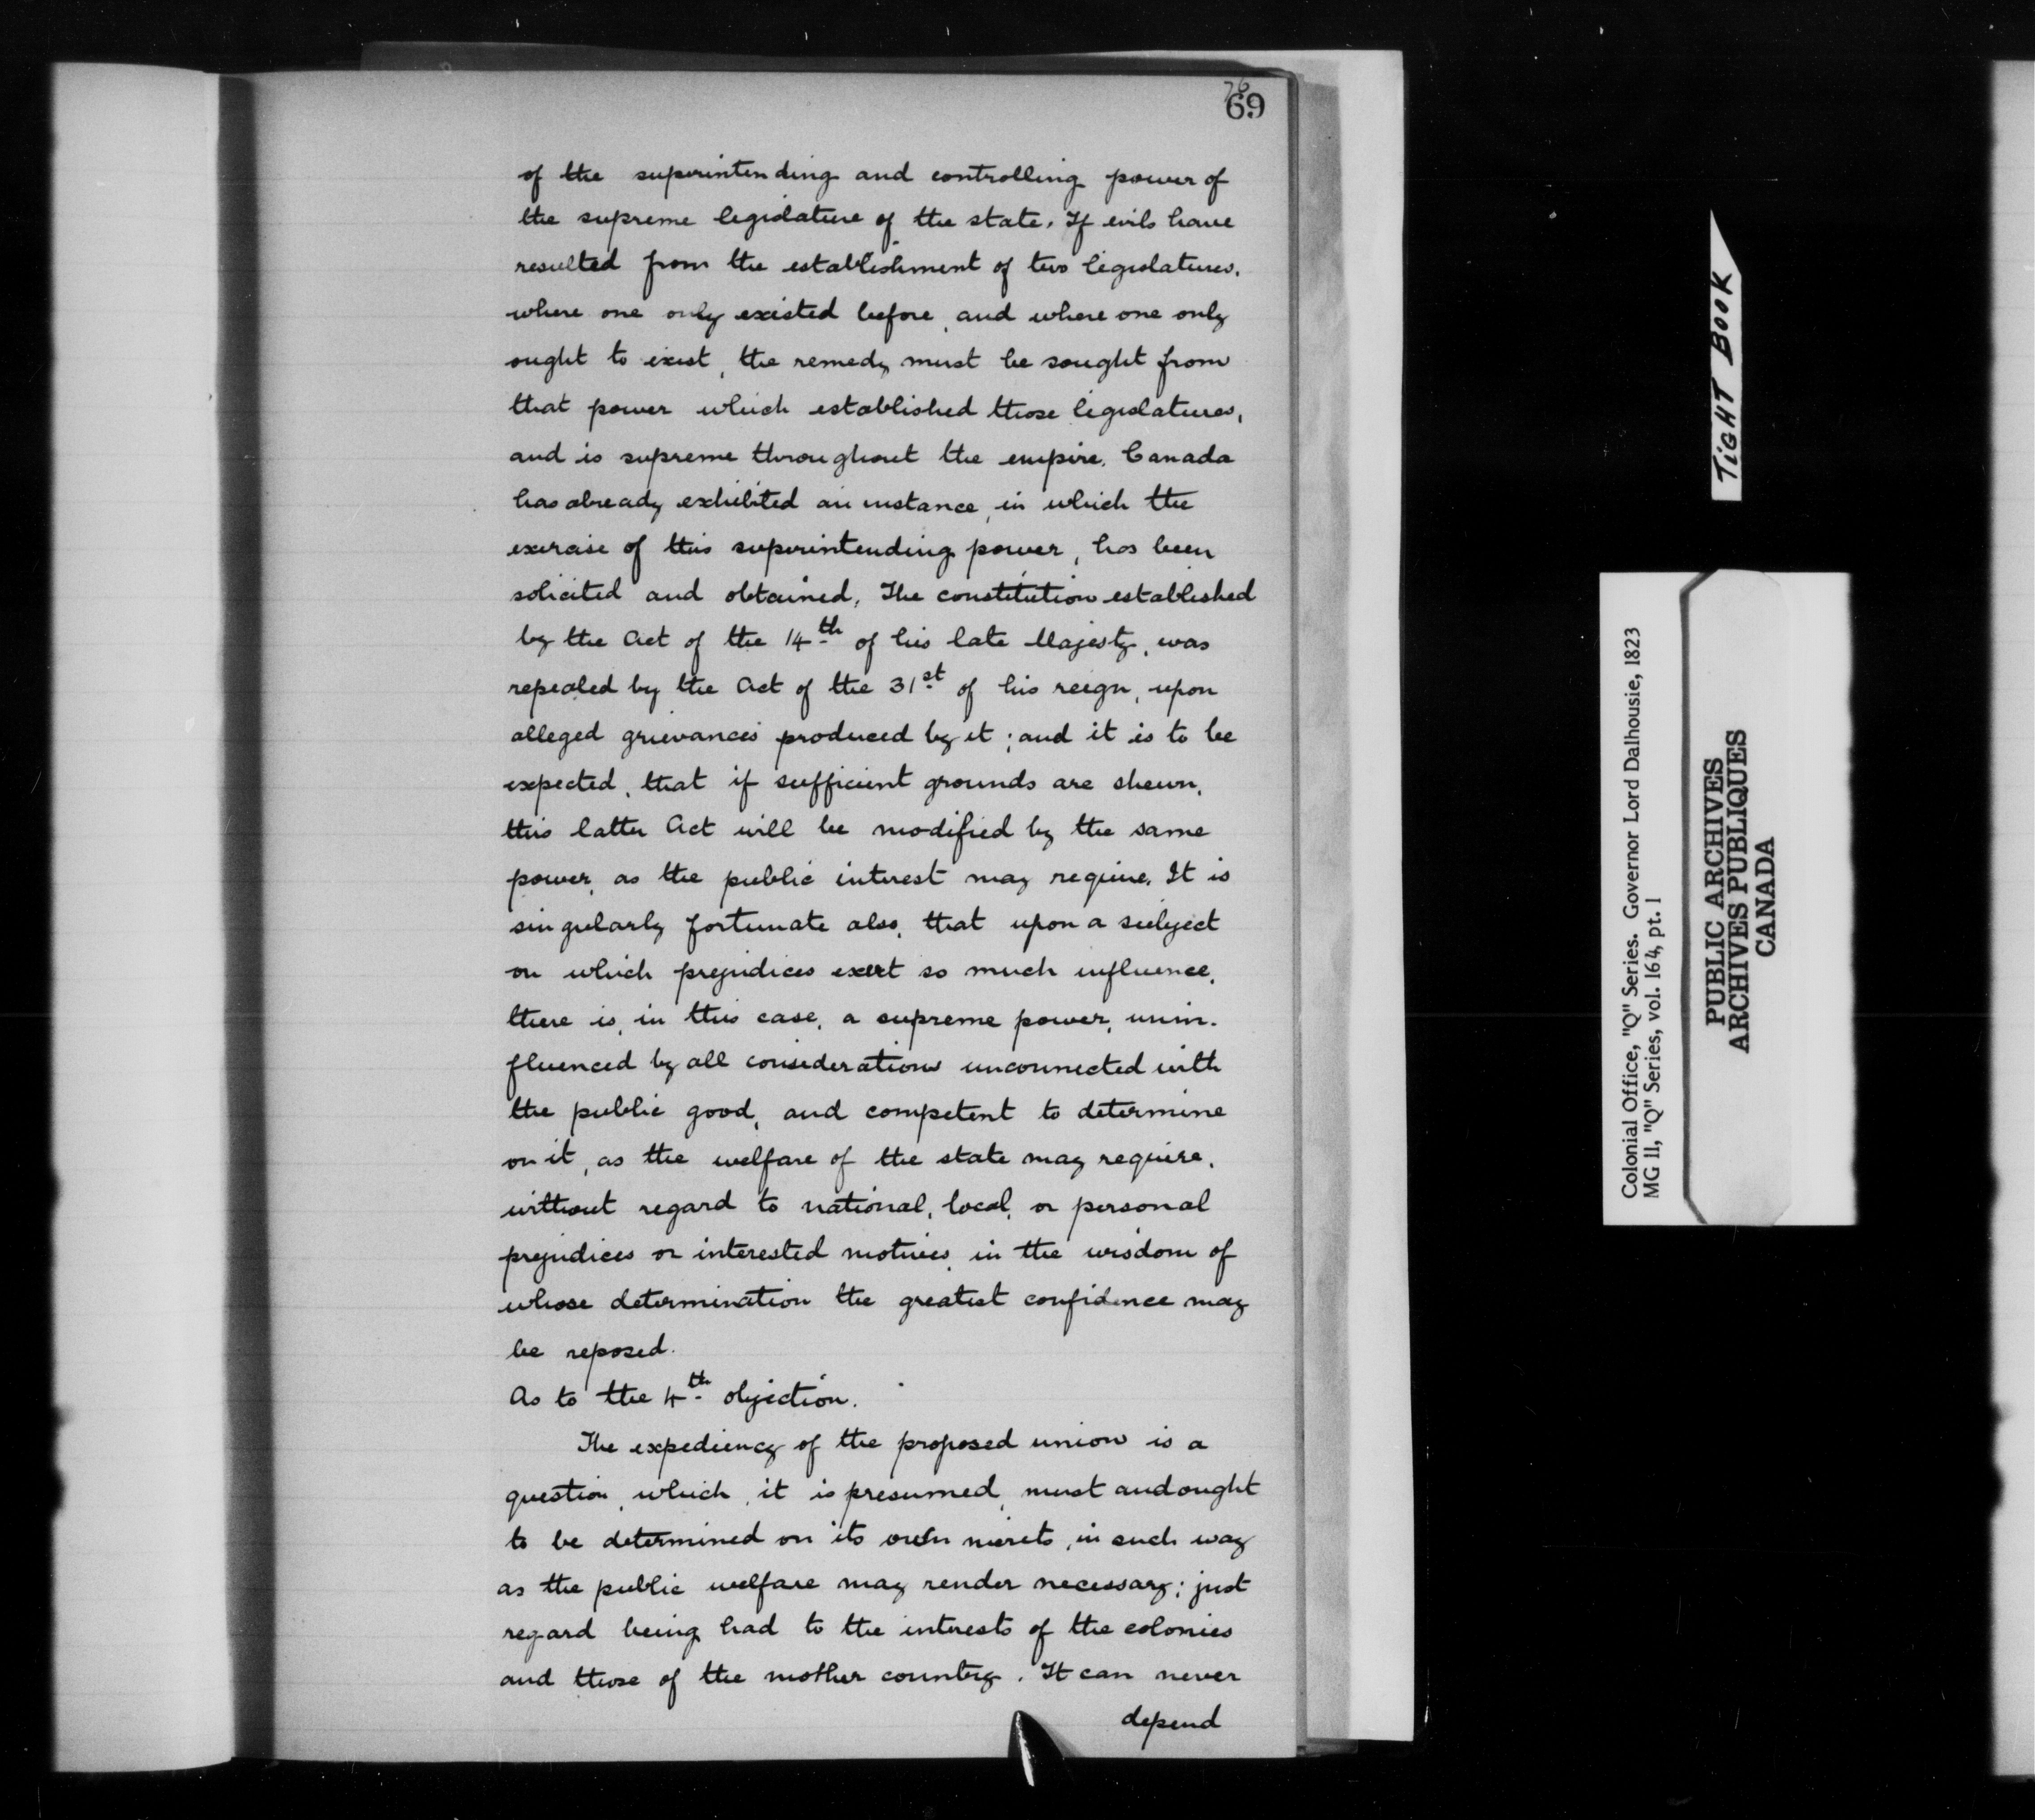 76
69
of the superintending and controlling power of
the supreme legislature of the state. If evils have
resulted from the establishment of two legislatures,
where one only existed before, and where one only
ought to exist, the remedy must be sought from
that power which established those legislatures,
and is supreme throughout the empire. Canada
has already exhibited an instance, in which the
exercise of this superintending power, has been
solicited and obtained. The constitution established
by the Act of the 14th of his late Majesty, was
repealed by the Act of the 31st of his reign, upon
alleged grievances produced by it; and it is to be
expected, that if sufficient grounds are shewn,
this latter Act will be modified by the same
power, as the public interest may require. It is
singularly fortunate also, that upon a subject
on which prejudices exert so much influence,
there is, in this case, a supreme power, unin-
fluenced by all considerations unconnected with
the public good, and competent to determine
on it, as the welfare of the state may require,
without regard to national, local, or personal
prejudices or interested motives, in the wisdom of
whose determination the greatest confidence may
be reposed.
As to the 4th objection.
The expediency of the proposed union is a
question, which, it is presumed, must and ought
to be determined on its own merits, in such way
as the public welfare may render necessary; just
regard being had to the interests of the colonies
and those of the mother country. It can never
depend
TIGHT BOOK
Colonial Office, "Q" Series. Governor Lord Dalhousie, 1823
MG 11, "Q" Series, vol. 164, pt. 1
PUBLIC ARCHIVES
ARCHIVES PUBLIQUES
CANADA